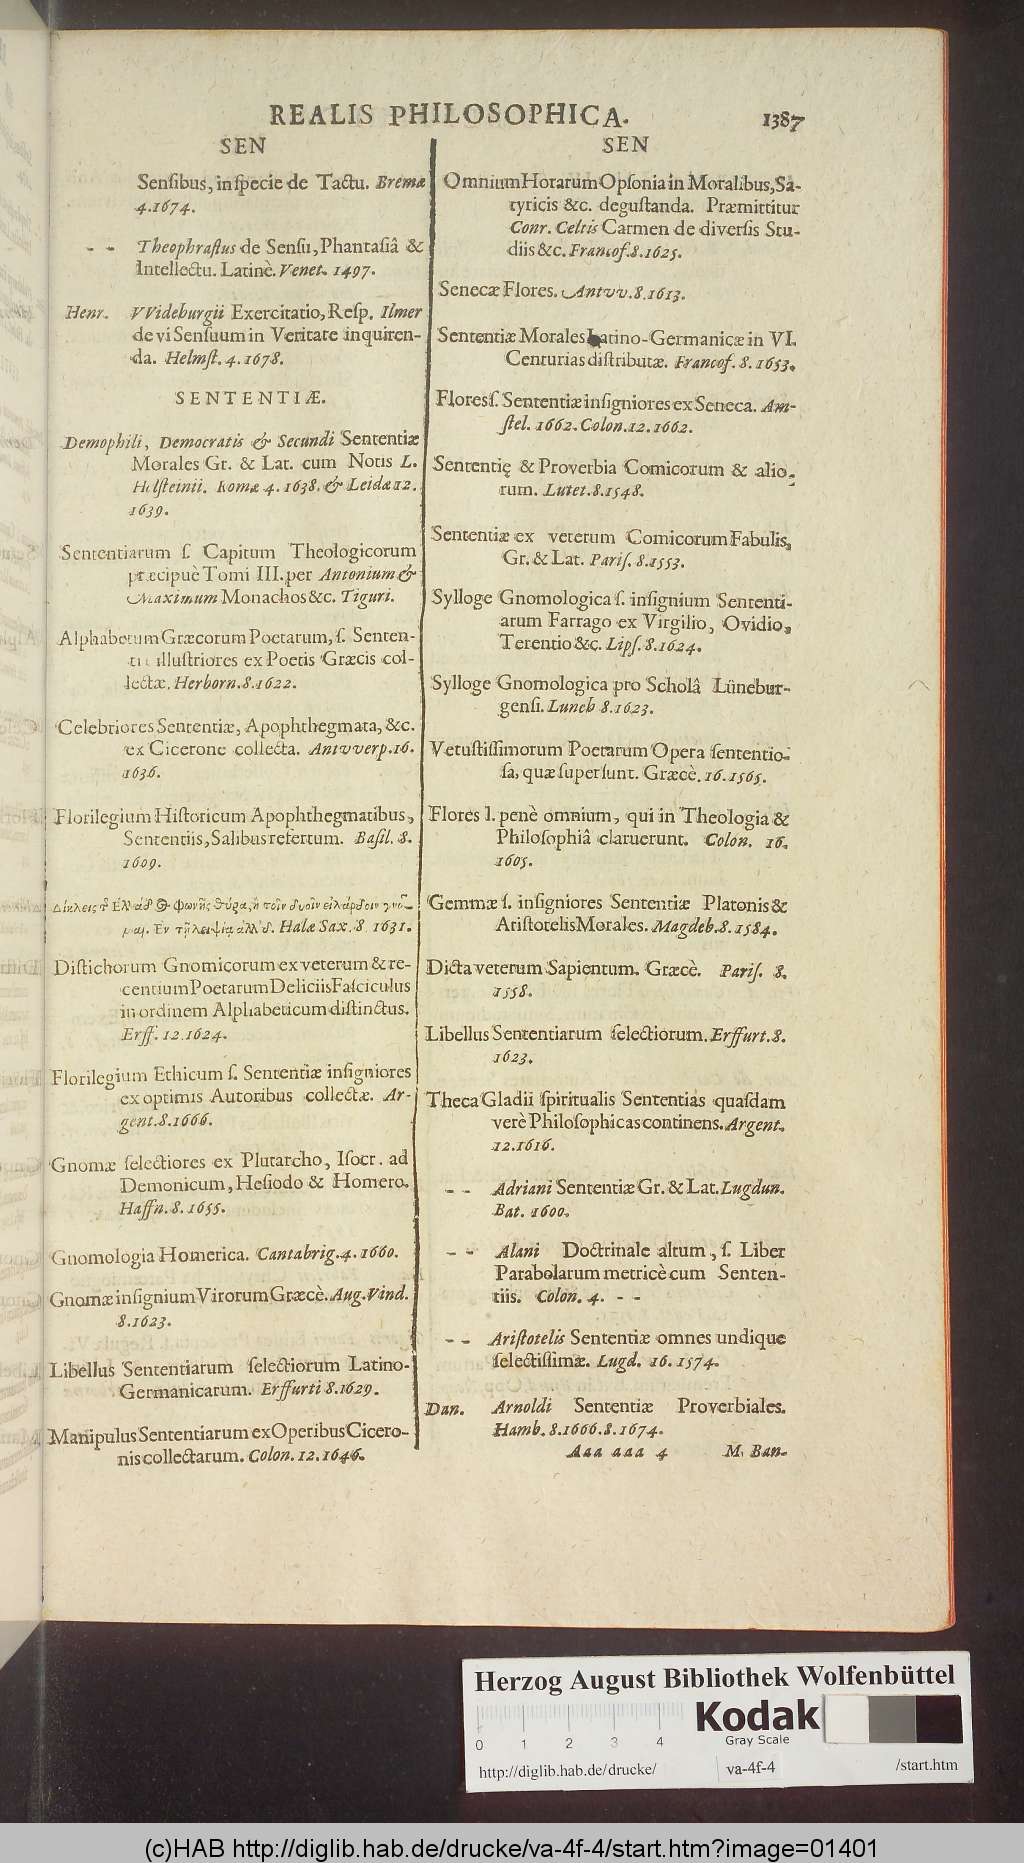 REALIS PHILOSOPHICA. 1387
SEN
Senſibus, in ſpecie de Tactu. Bremæ
4. 1674.
- - Theophraſtus de Senſu, Phantaſiâ &
Intellectu. Latinè. Venet. 1497.
Henr. VVideburgii Exercitatio, Reſp. Ilmer
de vi Senſuum in Veritate inquiren-
da. Helmſt. 4. 1678.
SENTENTIÆ.
Demophili, Democratis & Secundi Sententiæ
Morales Gr. & Lat. cum Notis L.
Holſteinii. Romæ 4. 1638. & Leidæ 12.
1639.
Sententiarum ſ. Capitum Theologicorum
præcipuè Tomi III. per Antonium &
Maximum Monachos &c. Tiguri.
Alphabetum Græcorum Poetarum, ſ. Senten-
illuſtriores ex Poetis Græcis col-
lectæ. Herborn. 8. 1622.
Celebriores Sententiæ, Apophthegmata, &c.
ex Cicerone collecta. Antvverp. 16.
1636.
Florilegium Hiſtoricum Apophthegmatibus,
Sententiis, Salibus refertum. Baſil. 8.
1609.
Halæ Sax. 8. 1631.
Diſtichorum Gnomicorum ex veterum & re-
centium Poetarum Deliciis Faſciculus
in ordinem Alphabeticum diſtinctus.
Erff. 12. 1624.
Florilegium Ethicum ſ. Sententiæ inſigniores
ex optimis Autoribus collectæ. Ar-
gent. 8. 1666.
Gnomæ ſelectiores ex Plutarcho, Iſocr. ad
Demonicum, Heſiodo & Homero.
Haffn. 8. 1655.
Gnomologia Homerica. Cantabrig. 4. 1660.
Gnomæ inſignium Virorum Græcè. Aug. Vind.
8. 1623.
Libellus Sententiarum ſelectiorum Latino-
Germanicarum. Erffurti 8. 1629.
Manipulus Sententiarum ex Operibus Cicero-
nis collectarum. Colon. 12. 1646.
SEN
Omnium Horarum Opſonia in Moralibus, Sa-
tyricis &c. deguſtanda. Præmittitur
Conr. Celtis Carmen de diverſis Stu-
diis &c. Francof. 8. 1625.
Senecæ Flores. Antvv. 8. 1613.
Sententiæ Morales Latino-Germanicæ in VI.
Centurias diſtributæ. Francof. 8. 1653.
Flores ſ. Sententiæ inſigniores ex Seneca. Am-
ſtel. 1662. Colon. 12. 1662.
Sententię & Proverbia Comicorum & alio-
rum. Lutet. 8. 1548.
Sententiæ ex veterum Comicorum Fabulis,
Gr. & Lat. Pariſ. 8. 1553.
Sylloge Gnomologica ſ. inſignium Sententi-
arum Farrago ex Virgilio, Ovidio,
Terentio &c. Lipſ. 8. 1624.
Sylloge Gnomologica pro Scholâ Lünebur-
genſi. Luneb 8. 1623.
Vetuſtiſſimorum Poetarum Opera ſententio-
ſa, quæ ſuperſunt. Græcè. 16. 1565.
Flores l. penè omnium, qui in Theologia &
Philoſophiâ claruerunt. Colon. 16.
1605.
Gemmæ ſ. inſigniores Sententiæ Platonis &
Ariſtotelis Morales. Magdeb. 8. 1584.
Dicta veterum Sapientum. Græcè. Pariſ. 8.
1558.
Libellus Sententiarum ſelectiorum. Erffurt. 8.
1623.
Theca Gladii ſpiritualis Sententias quaſdam
verè Philoſophicas continens. Argent.
12. 1616.
- - Adriani Sententiæ Gr. & Lat. Lugdun.
Bat. 1600.
- - Alani Doctrinale altum, ſ. Liber
Parabolarum metricè cum Senten-
tiis. Colon. 4. - -
- - Ariſtotelis Sententiæ omnes undique
ſelectiſſimæ. Lugd. 16. 1574.
Dan. Arnoldi Sententiæ Proverbiales.
Hamb. 8. 1666. 8. 1674.
Aaa aaa 4 M. Ban-
Herzog August Bibliothek Wolfenbüttel
Kodak
Gray Scale
0 1 2 3 4
http://diglib.hab.de/drucke/ va-4f-4 /start.htm
(c)HAB http://diglib.hab.de/drucke/va-4f-4/start.htm?image=01401